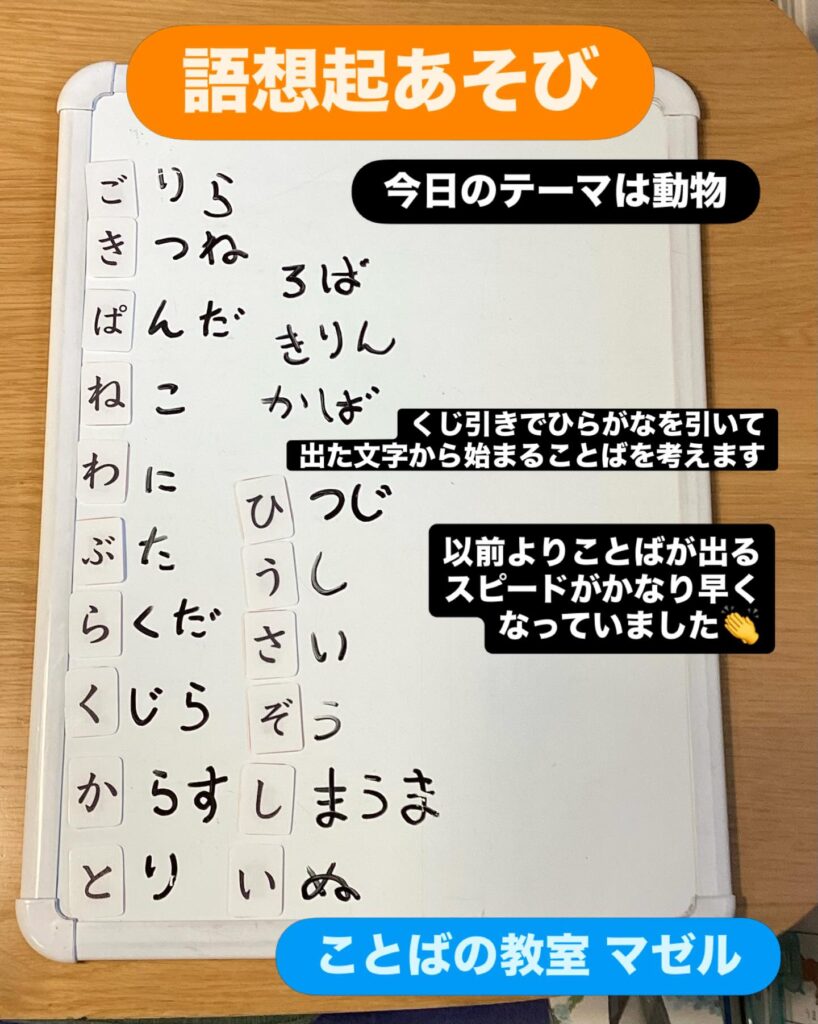 語想起あそび
今日のテーマは動物
ごりら
きつね
ぱんだ
ねこ
わに
ぶた
らくだ
くじら
からす
とり
ろば
きりん
かば
ひつじ
うし
さい
ぞう
しまうま
いぬ
くじ引きでひらがなを引いて
出た文字から始まることばを考えます
以前よりことばが出る
スピードがかなり早く
なっていました👏
ことばの教室 マゼル